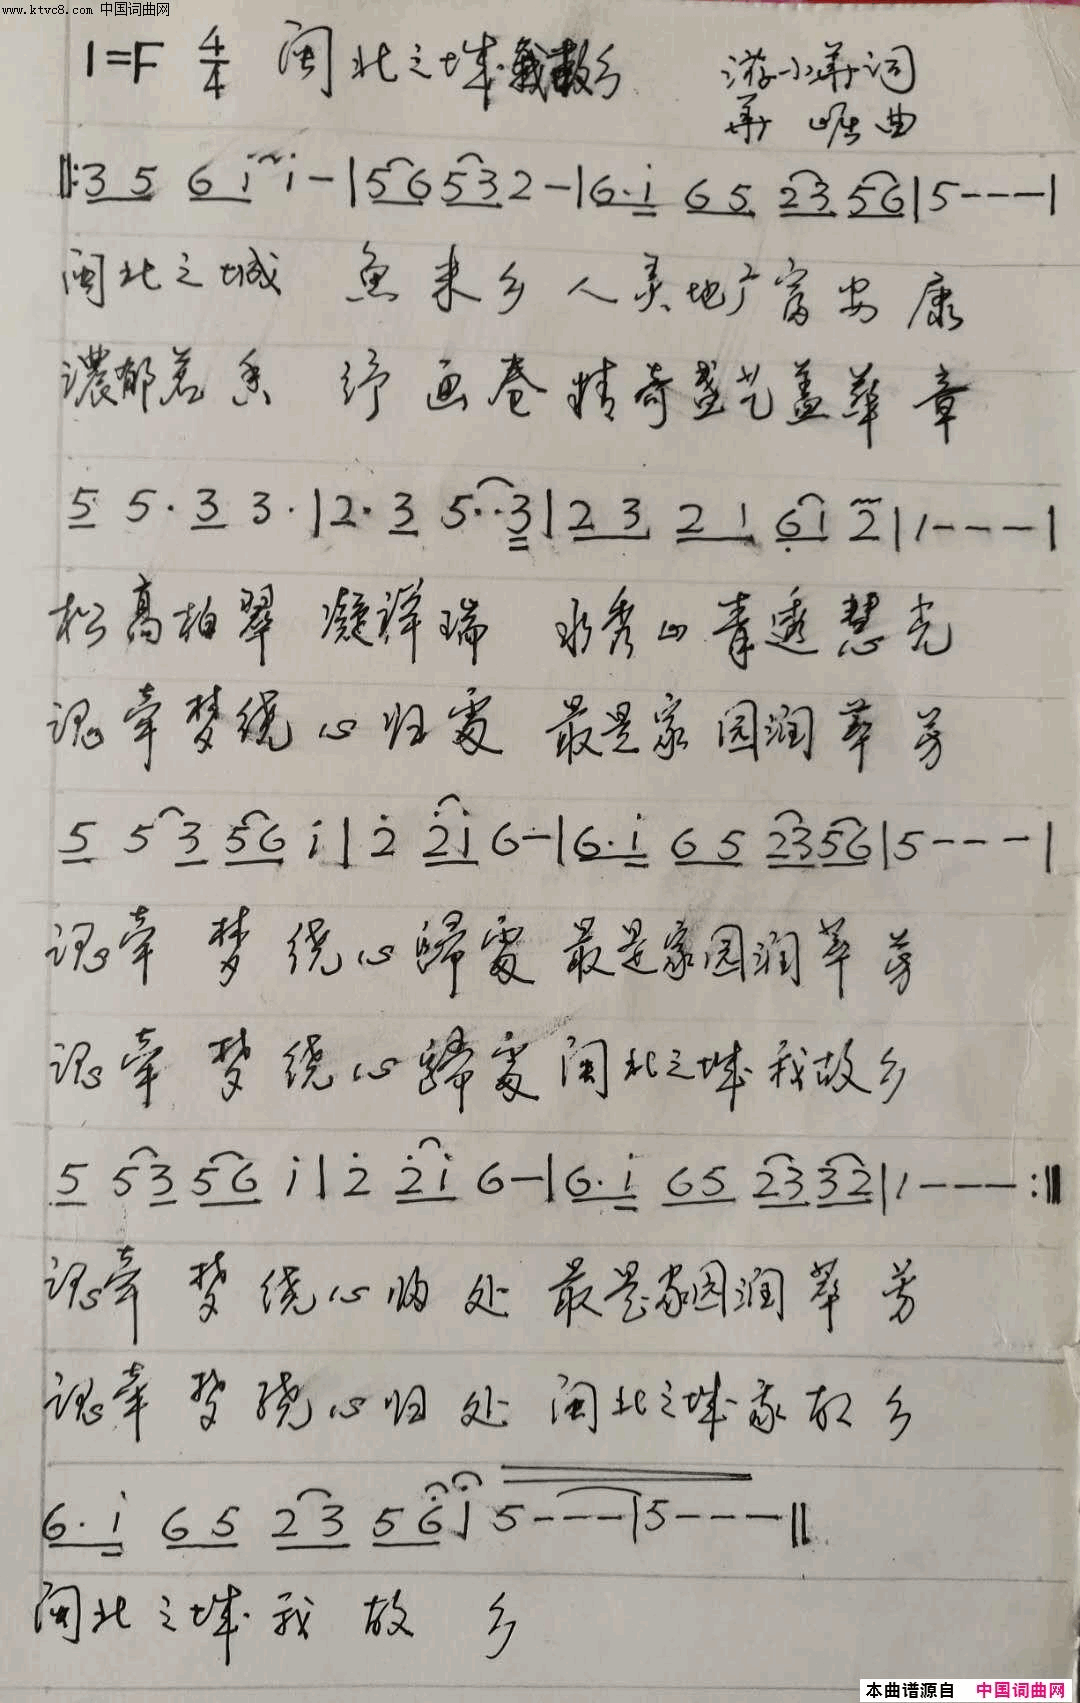 www.ktvc8.com 中国词曲网
1=F 4/4 闽北之城我故乡 游小华词
华山居曲
‖:3 5 6 i i - | 5 6 5 3 2 - | 6. i 6 5 2 3 5 6 | 5 - - - |
闽北之城 魚来乡 人灵地广富安康
濃郁茗香 纾画卷 精奇盛艺盖华章
5 5. 3 3. | 2. 3 5.. 3 | 2 3 2 1 6 1 2 | 1 - - - |
松高柏翠 凝祥瑞 水秀山青透慧光
魂牵梦绕心归處 最是家园润華芳
5 5 3 5 6 i | 2 2 i 6 - | 6. i 6 5 2 3 5 6 | 5 - - - |
魂牵 梦 绕心歸處 最是家园润华芳
魂牵 梦绕心歸處 闽北之城我故乡
5 5 3 5 6 i | 2 2 i 6 - | 6. i 6 5 2 3 3 2 | 1 - - - :‖
魂牵 梦绕心归处 最是家园润華芳
魂牵 梦绕心归处 闽北之城家故乡
6. i 6 5 2 3 5 6 i 5 - - - | 5 - - - ‖
闽北之城我故乡
本曲谱源自 中国词曲网